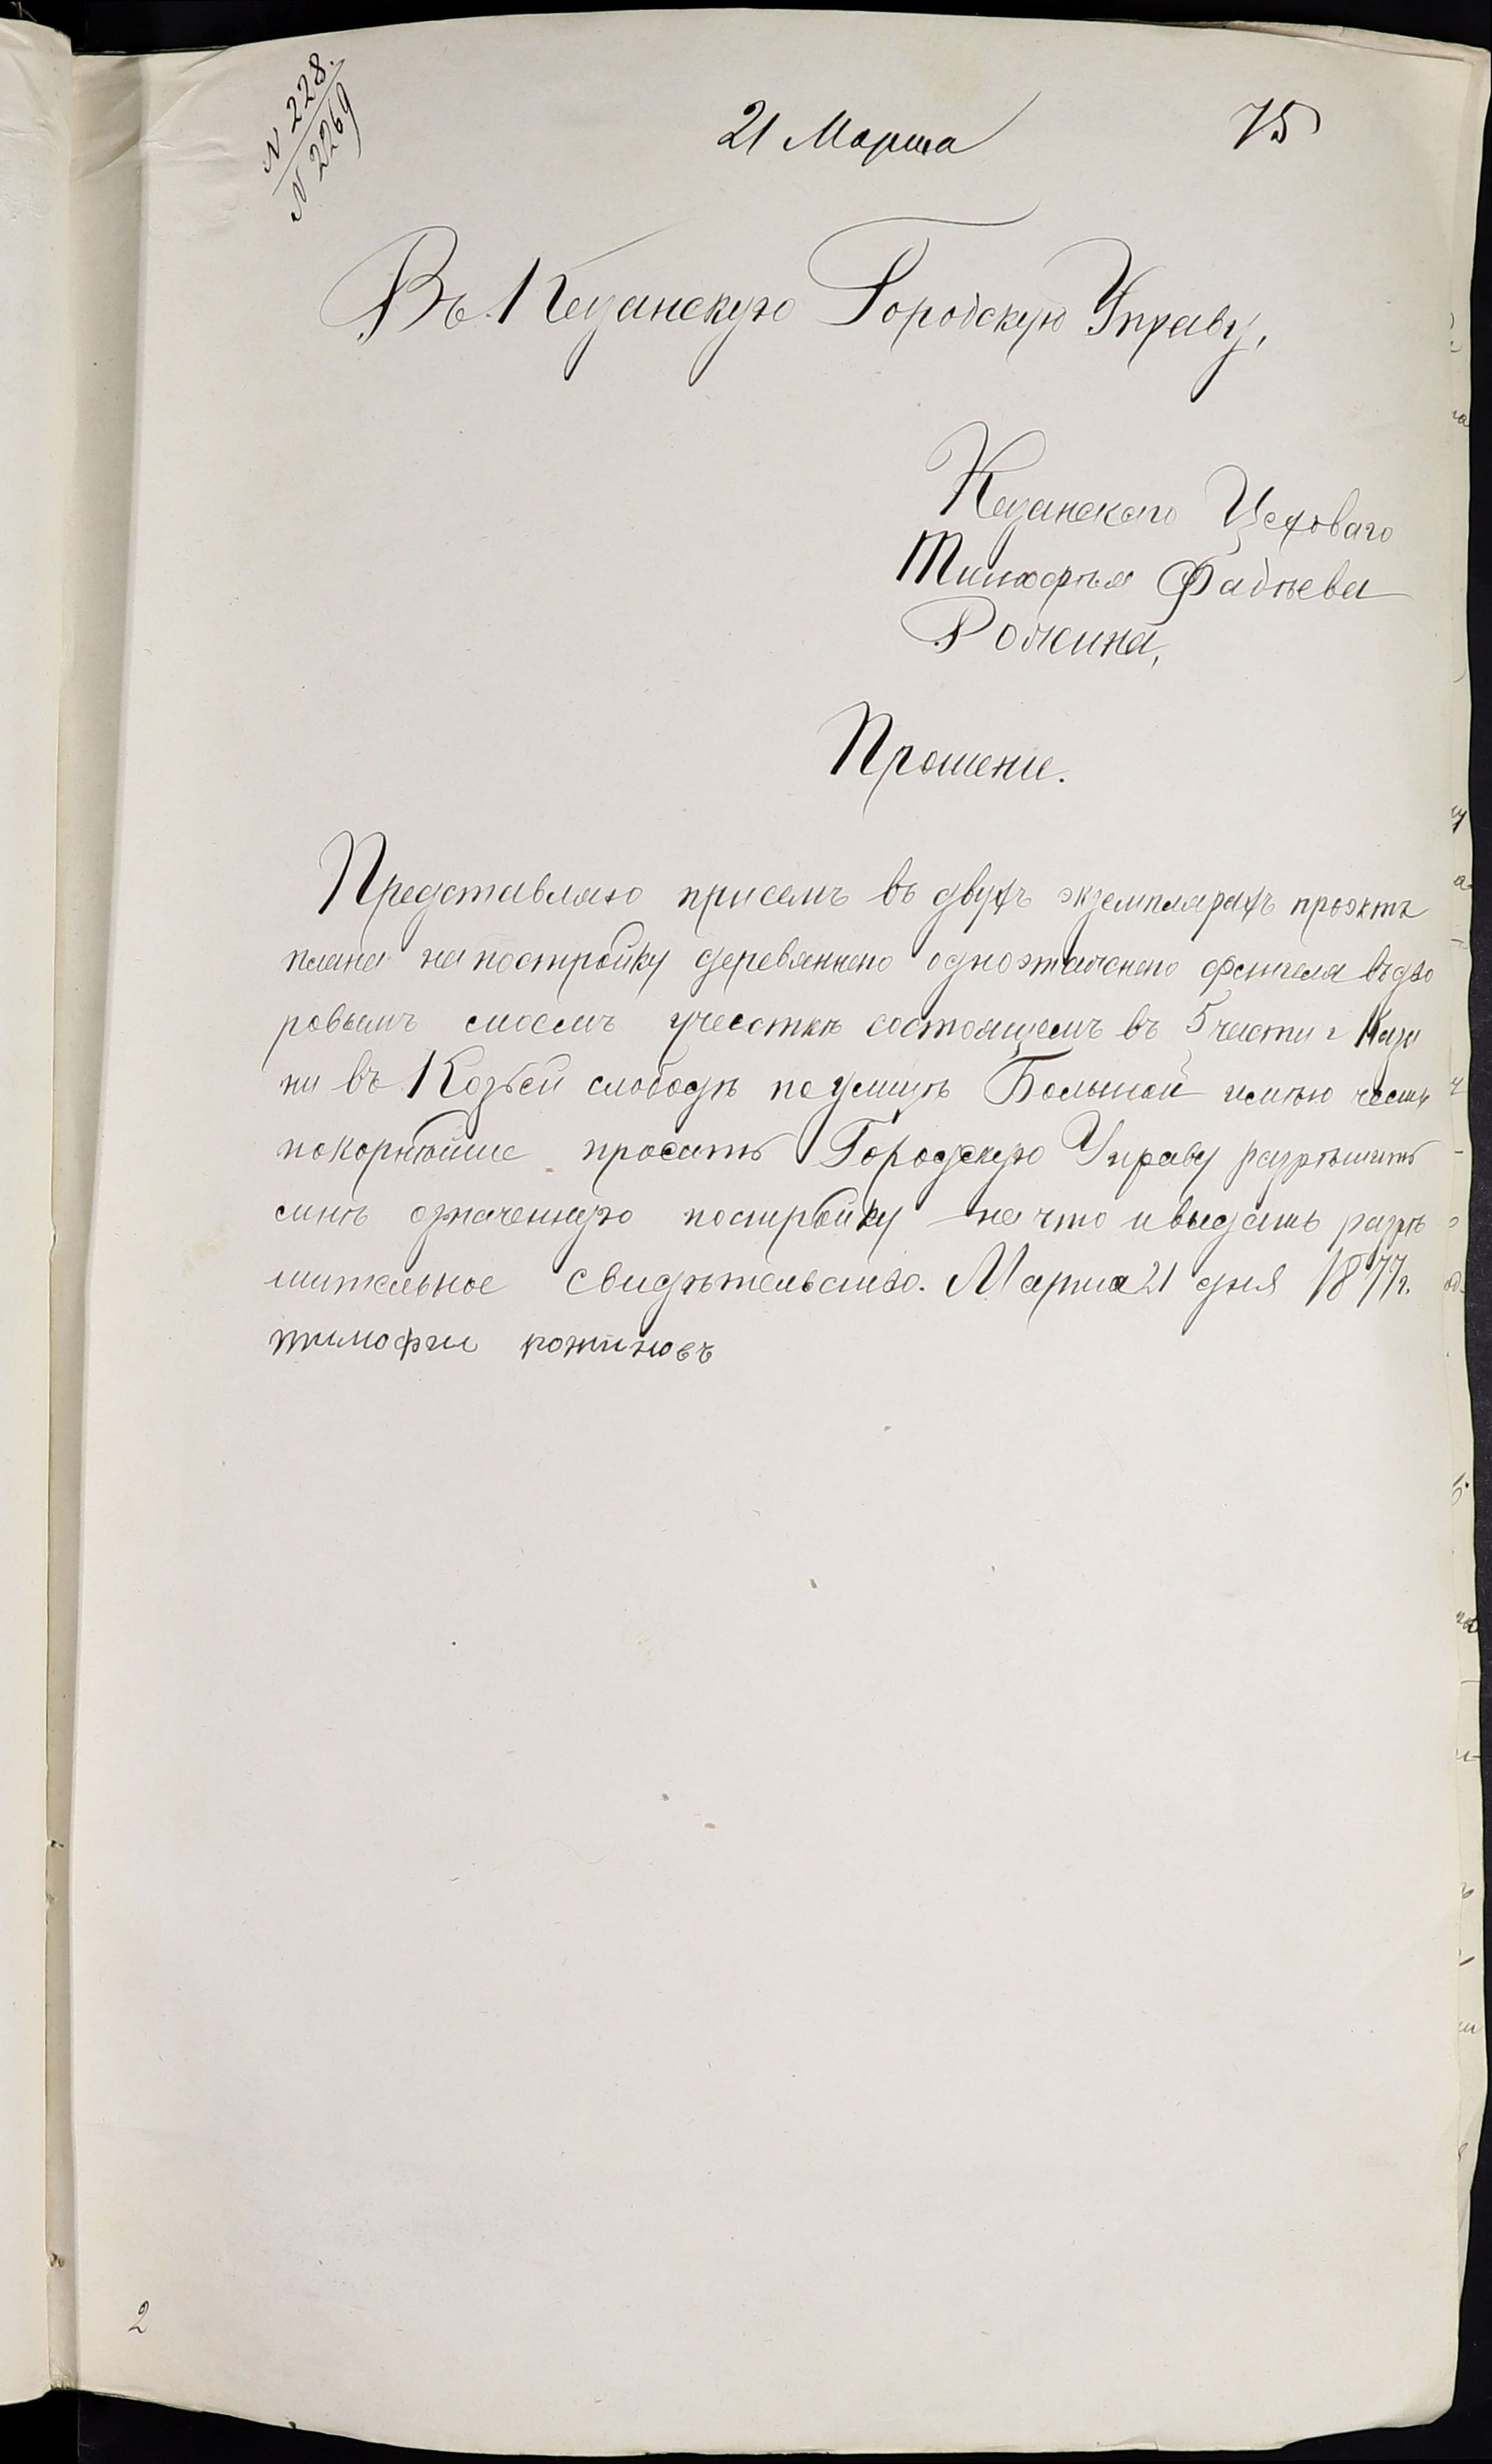 N 228.
N 2269
21 Марта
75
Въ Казанскую Городскую Управу,
Казанскаго Цеховаго
Тимофея Фадѣева
Рожина,
Прошение.
Представляю присемъ въ двухъ экземплярахъ проэктъ
плана на постройку деревяннаго одноэтажнаго флигеля въ дво
ровымъ моемъ участкѣ состоящемъ въ 5 части г Каза
ни въ Козьей слободѣ по улицѣ Большой имѣю честь
покорнѣйше просить Городскую Управу разрѣшить
мнѣ означенную постройку на что и выдать разрѣ
шительное свидѣтельство. Марта 21 дня 1877 г.
тимофеи рожиновъ
2